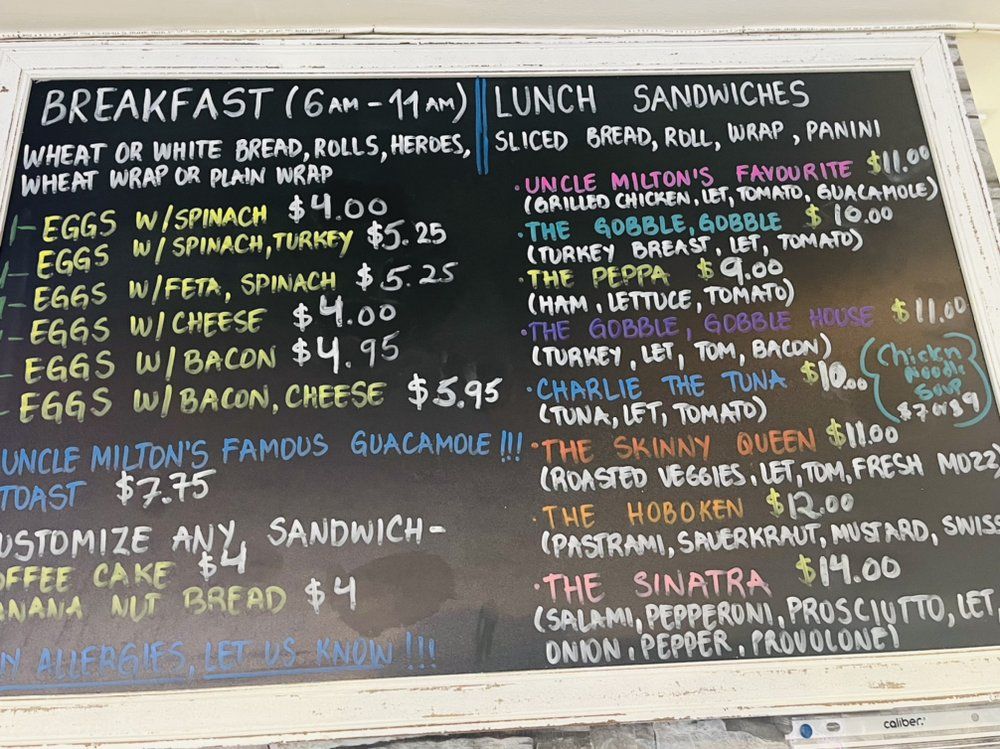 BREAKFAST (6AM - 11AM)
WHEAT OR WHITE BREAD, ROLLS, HEROES,
WHEAT WRAP OR PLAIN WRAP
- EGGS W/SPINACH $4.00
- EGGS W/SPINACH, TURKEY $5.25
- EGGS W/FETA, SPINACH $5.25
- EGGS W/CHEESE $4.00
- EGGS W/BACON $4.95
- EGGS W/BACON, CHEESE $5.95
UNCLE MILTON'S FAMOUS GUACAMOLE!!!
TOAST $7.75
USTOMIZE ANY SANDWICH-
OFFEE CAKE $4
ANANA NUT BREAD $4
NY ALLERGIES, LET US KNOW!!!
LUNCH SANDWICHES
SLICED BREAD, ROLL, WRAP, PANINI
·UNCLE MILTON'S FAVOURITE $11.00
(GRILLED CHICKEN, LET, TOMATO, GUACAMOLE)
·THE GOBBLE, GOBBLE $10.00
(TURKEY BREAST, LET, TOMATO)
·THE PEPPA $9.00
(HAM, LETTUCE, TOMATO)
·THE GOBBLE, GOBBLE HOUSE $11.00
(TURKEY, LET, TOM, BACON)
·CHARLIE THE TUNA $10.00
(TUNA, LET, TOMATO)
Chickn
Noodle
Soup
$7 or $9
·THE SKINNY QUEEN $11.00
(ROASTED VEGGIES, LET, TOM, FRESH MOZZ
·THE HOBOKEN $12.00
(PASTRAMI, SAUERKRAUT, MUSTARD, SWISS
·THE SINATRA $14.00
(SALAMI, PEPPERONI, PROSCIUTTO, LET,
ONION, PEPPER, PROVOLONE)
caliber.